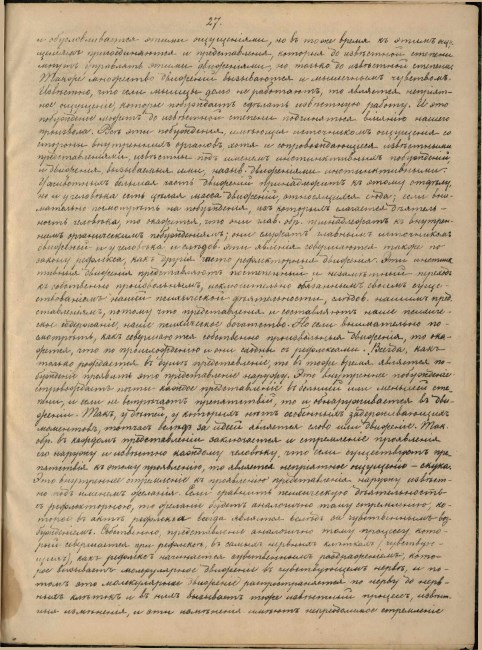 27.
и обусловливаются этими ощущеніями, но въ тоже время къ этимъ ощу-
щеніямъ присоединяются и представленія, которыя до извѣстной степени
могутъ управлять этими движеніями, но только до извѣстной степени.
Такое множество движеній вызываются и мышечнымъ чувствомъ.
Извѣстно, что если мышцы долго не работаютъ, то является непріят-
ное ощущеніе, которое побуждаетъ сдѣлать извѣстную работу. И это
побужденіе можетъ до извѣстной степени подчиняться вліянію нашего
произвола. Всѣ эти побужденія, имѣющія источникомъ ощущенія со
стороны внутреннихъ органовъ хотя и сопровождающіяся извѣстными
представленіями, извѣстны подъ именемъ инстинктивныхъ побужденій,
и движенія вызываемыя ими, назыв. движеніями инстинктивными.
У животныхъ большая часть движеній принадлежитъ къ этому отдѣлу,
но и у человѣка есть цѣлая масса движеній, относящихся сюда; если вни-
мательно посмотрѣть на побужденія, изъ которыхъ слагается дѣятель-
ность человѣка, то окажется, что они глав. обр. принадлежатъ къ внутрен-
нимъ органическимъ побужденіямъ; они служатъ главнымъ источникомъ
движеній и у человѣка и слѣдов. эти явленія совершаются также по
закону рефлекса, какъ другія чисто рефлекторныя движенія. Эти инстинк-
тивныя движенія представляютъ постепенный и незамѣтный переходъ
къ собственно произвольнымъ, исключительно обязаннымъ своимъ суще-
ствованіемъ нашей психической дѣятельности, слѣдов. нашимъ пред-
ставленіямъ, потому что представленія и составляютъ наше психиче-
ское содержаніе, наше психическое богатство. Но если внимательно по-
смотрѣть, какъ совершаются собственно произвольныя движенія, то ока-
жется, что по происхожденію и они сходны съ рефлексами. Всегда, какъ
только рождается въ душѣ представленіе, то въ тоже время является по-
бужденіе проявить это представленіе наружу. Это внутреннее побужденіе
сопровождаетъ почти каждое представленіе въ большей или меньшей сте-
пени, и если не встрѣчаетъ препятствій, то и обнаруживается въ дви-
женіи. Такъ, у дѣтей, у которыхъ нѣтъ особенныхъ задерживающихъ
моментовъ, тотчасъ вслѣдъ за идеей является слово или движеніе. Так.
обр. въ каждомъ представленіи заключается и стремленіе проявленія
его наружу и извѣстно каждому человѣку, что если существуютъ пре-
пятствія къ этому проявленію, то является непріятное ощущеніе – скука.
Это внутреннее стремленіе къ проявленію представленія наружу извѣст-
но подъ именемъ желанія. Если сравнить психическую дѣятельность
съ рефлекторною, то желаніе будетъ аналогично тому стремленію, ко-
торое въ актѣ рефлекса всегда является вслѣдъ за чувственнымъ воз-
бужденіемъ. Собственно, представленіе аналогично тому процессу, кото-
рый совершается при рефлексѣ, въ самыхъ нервныхъ клѣткахъ, (чувствую-
щихъ), какъ рефлексъ начинается чувственнымъ раздраженіемъ, кото-
рое вызываетъ молекулярное движеніе въ чувствующемъ нервѣ, и по-
томъ это молекулярное движеніе распространяется по нерву до нерв-
ныхъ клѣтокъ и въ нихъ вызываетъ тоже извѣстный процессъ, извѣст-
ныя измѣненія, и эти измѣненія имѣютъ непреодолимое стремленіе